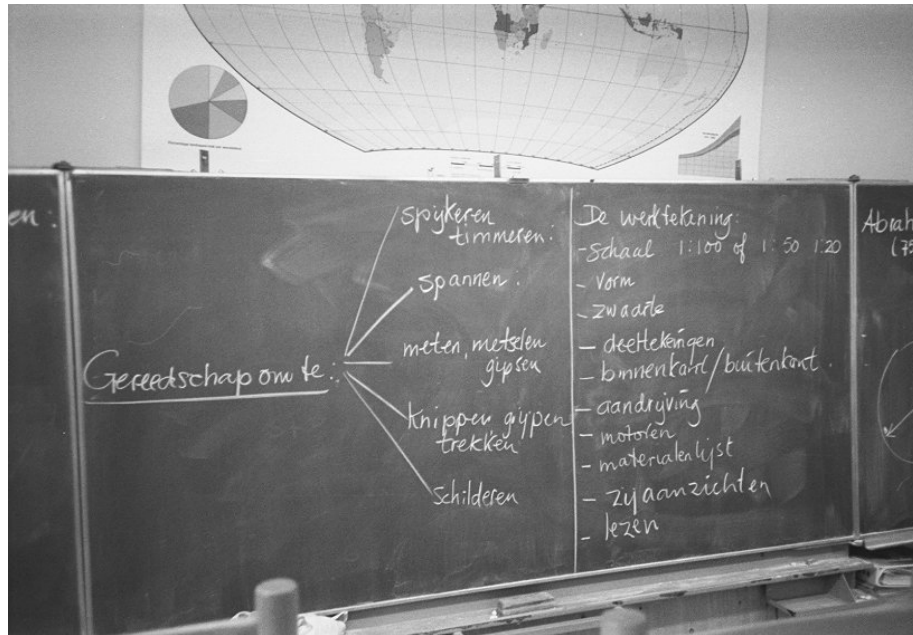 en:
Gereedschap om te:
spijkeren
timmeren:
spannen:
meten, metselen
gipsen
knippen, grijpen
trekken
schilderen
De werktekening:
- Schaal 1:100 of 1:50 1:20
- vorm
- zwaarte
- deeltekeningen
- binnenkant/buitenkant.
- aandrijving
- motoren
- materialenlijst
- zijaanzichten
- lezen
Abrah
(75